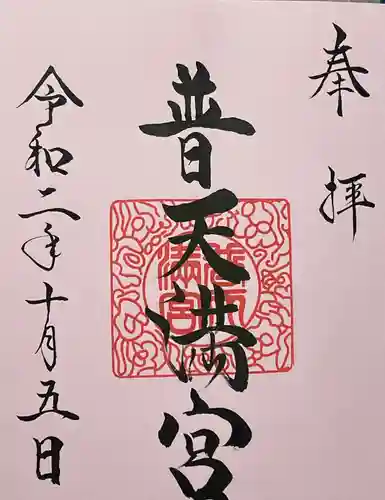 奉拝
普天満宮
普天満宮
令和二年十月五日